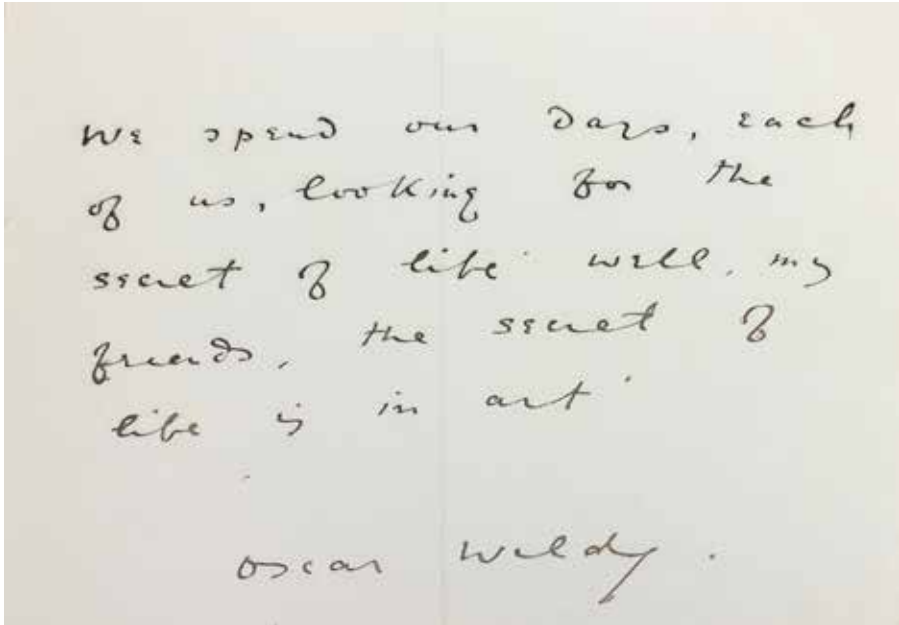 We spend our days, each
of us, looking for the
secret of life. Well, my
friends, the secret of
life is in art.
Oscar Wilde.